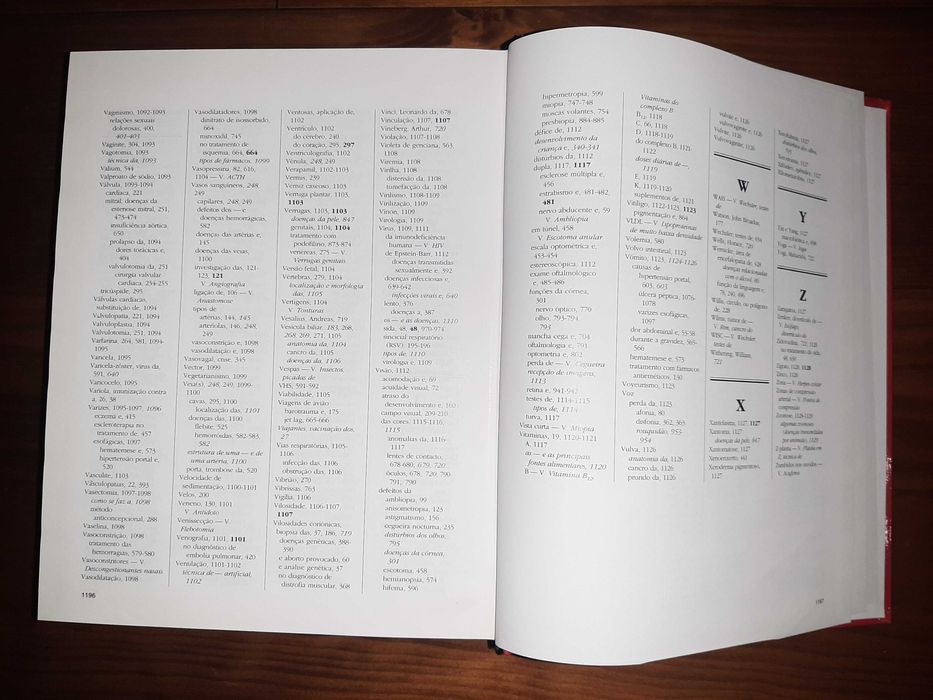 Vaginismo, 1092-1093
relações sexuais
dolorosas, 400,
402-403
Vaginite, 304, 1093
Vagotomia, 1093
técnica da, 1093
Valium, 344
Valproato de sódio, 1093
Válvula, 1093-1094
cardíaca, 221
mitral, doenças da
estenose mitral, 251,
473-474
insuficiência aórtica,
650
prolapso da, 1094
dores torácicas e,
404
valvulotomia da, 251
cirurgia valvular
cardíaca, 254-255
tricúspide, 295
Válvulas cardíacas,
substituição de, 1094
Valvulopatia, 221, 1094
Valvuloplastia, 1094
Valvulotomia, 251, 1094
Varfarina, 264, 581, 1094-
1095
Varicela, 1095
Varicela-zóster, vírus da,
591, 640
Varicocelo, 1095
Varíola, imunização contra
a, 26, 38
Varizes, 1095-1097, 1096
eczema e, 415
escleroterapia no
tratamento de, 457
esofágicas, 1097
hematemese e, 573
hipertensão portal e,
520
Vasculite, 1103
Vásculopatias, 22, 393
Vasectomia, 1097-1098
como se faz a, 1098
método
anticoncepcional, 288
Vaselina, 1098
Vasoconstrição, 1098
tratamento das
hemorragias, 579-580
Vasoconstritores — V.
Descongestionantes nasais
Vasodilatação, 1098
1196
Vasodilatadores, 1098
dinitrato de isossorbido,
664
minoxidil, 745
no tratamento de
isquemia, 664, 664
tipos de fármacos, 1099
Vasopressina, 82, 616,
1104 — V. ACTH
Vasos sanguíneos, 248,
249
capilares, 248, 249
defeitos dos — e
doenças hemorrágicas,
582
doenças das artérias e,
145
doenças das veias,
1100
investigação das, 121-
123, 121
V. Angiografia
ligação de, 106 — V.
Anastomose
tipos de
artérias, 144, 145
arteríolas, 146, 248,
249
vasoconstrição e, 1098
vasodilatação e, 1098
Vasovagal, crise, 345
Vector, 1099
Vegetarianismo, 1099
Veia(s), 248, 249, 1099-
1100
cavas, 295, 1100
localização das, 1101
doenças das, 1100
flebite, 525
hemorróidas, 582-583,
582
estrutura de uma — e de
uma artéria, 1100
porta, trombose da, 520
Velocidade de
sedimentação, 1100-1101
Velos, 200
Veneno, 130, 1101
V. Antídoto
Venissecção — V.
Flebotomia
Venografia, 1101, 1101
no diagnóstico de
embolia pulmonar, 420
Ventilação, 1101-1102
técnica de — artificial,
1102
Ventosas, aplicação de,
1102
Ventrículo, 1102
do cérebro, 240
do coração, 295, 297
Ventriculografia, 1102
Vénula, 248, 249
Verapamil, 1102-1103
Vermis, 239
Verniz caseoso, 1103
Verruga plantar, 1103,
1103
Verrugas, 1103, 1103
doenças da pele, 847
genitais, 1104, 1104
tratamento com
podofilino, 873-874
venéreas, 275 — V.
Verrugas genitais
Versão fetal, 1104
Vértebras, 279, 1104
localização e morfologia
das, 1105
Vertigens, 1104
V. Tonturas
Vesalius, Andreas, 719
Vesícula biliar, 183, 268,
268, 269, 271, 1105
anatomia da, 1104
cancro da, 1105
doenças da, 1106
Vespas — V. Insectos,
picadas de
VHS, 591-592
Viabilidade, 1105
Viagens de avião
barotrauma e, 175
jet lag, 665-666
Viajantes, vacinação dos,
27
Vias respiratórias, 1105-
1106
infecção das, 1106
obstrução das, 1106
Vibrião, 270
Vibrissas, 763
Vigília, 1106
Vilosidade, 1106-1107
1107
Vilosidades coriónicas,
biopsia das, 37, 186, 719
doenças genéticas, 388-
390
e aborto provocado, 60
e análise genética, 37
no diagnóstico de
distrofia muscular, 368
Vinci, Leonardo da, 678
Vinculação, 1107, 1107
Vineberg, Arthur, 720
Violação, 1107-1108
Violeta de genciana, 563,
1108
Viremia, 1108
Virilha, 1108
distensão da, 1108
tumefacção da, 1108
Virilismo, 1108-1109
Virilização, 1109
Virion, 1109
Virologia, 1109
Vírus, 1109, 1111
da imunodeficiência
humana — V. HIV
de Epstein-Barr, 1112
doenças transmitidas
sexualmente e, 392
doenças infecciosas e,
639-642
infecções virais e, 640
lento, 376
doenças a, 387
os — e as doenças, 1110
sida, 48, 48, 970-974
sincicial respiratório
(RSV), 195-196
tipos de, 1110
virologia e, 1109
Visão, 1112
acomodação e, 69
acuidade visual, 72
atraso do
desenvolvimento e, 160
campo visual, 209-210
das cores, 1115-1116,
1115
anomalias da, 1116-
1117
lentes de contacto,
678-680, 679, 720
óculos, 678, 720, 790,
791, 790
defeitos da
ambliopia, 99
anisometropia, 123
astigmatismo, 156
cegueira nocturna, 235
distúrbios dos olhos,
795
doenças da córnea,
301
escotoma, 458
hemianopsia, 574
hifema, 596
hipermetropia, 599
miopia, 747-748
moscas volantes, 754
presbiopia, 884-885
défice de, 1112
desenvolvimento da
criança e, 340-341
distúrbios da, 1112
dupla, 1117, 1117
esclerose múltipla e,
456
estrabismo e, 481-482,
481
nervo abducente e, 59
V. Ambliopia
em túnel, 458
V. Escotoma anular
escala optométrica e,
453-454
estereoscópica, 1112
exame oftalmológico
e, 485-486
funções da córnea,
301
nervo óptico, 770
olho, 793-794,
793
mancha cega e, 704
oftalmologia e, 791
optometria e, 802
perda de — V. Cegueira
recepção de imagens,
1113
retina e, 941-942
testes de, 1114-1115
tipos de, 1114
turva, 1117
Vista curta — V. Miopia
Vitaminas, 19, 1120-1121
A, 1117
as — e as principais
fontes alimentares, 1120
B — V. Vitamina B12
Vitaminas do
complexo B
B12, 1118
C, 66, 1118
D, 1118-1119
do complexo B, 1121,
1122
doses diárias de —,
1119
E, 1119
K, 1119-1120
suplementos de, 1121
Vitiligo, 1122-1123, 1123
pigmentação e, 864
VLDL — V. Lipoproteínas
de muito baixa densidade
Volémia, 580
Volvo intestinal, 1123
Vómito, 1123, 1124-1126
causas de
hipertensão portal,
603, 603
úlcera péptica, 1076-
1078
varizes esofágicas,
1097
dor abdominal e, 55-58
durante a gravidez, 565-
566
hematemese e, 573
tratamento com fármacos
antieméticos, 130
Voyeurismo, 1123
Voz
perda da, 1123
afonia, 80
disfonia, 362, 363
rouquidão, 953-
954
Vulva, 1126
anatomia da, 1126
cancro da, 1126
prurido da, 1126
vulvite e, 1126
vulvovagenite e, 1126
Vulvite, 1126
Vulvovagenite, 1126
W
WAIS — V. Wechsler, testes
de
Watson, John Broadus,
177
Wechsler, testes de, 454
Wells, Horace, 720
Wernicke, área de
encefalopatia de, 428
doenças relacionadas
com o álcool, 86
função da linguagem e,
78, 240, 696
Willis, círculo, ou polígono
de, 228
Wilms, tumor de —
V. Rim, cancro do
WISC — V. Wechsler,
testes de
Withering, William,
722
X
Xantelasma, 1127, 1127
Xantoma, 1127
doenças da pele, 847
Xantomatose, 1127
Xenoenxerto, 441
Xeroderma pigmentoso,
1127
Xeroftalmia, 1127
distúrbios dos olhos,
795
Xerostomia, 1127
Xifóides, apêndice, 1127
Xilometazolina, 1127
Y
Yin e Yang, 1127
macrobiótica e, 698
Yoga — V. Ioga
Yogi, Maharishi, 722
Z
Zaragatoa, 1127
Zenker, divertículo de —
V. Esófago,
divertículo do
Zidovudina, 722, 1128
no tratamento da sida,
48, 650
Zigoto, 1128, 1128
Zinco, 1128
Zona — V. Herpes-zoster
Zonas de compressão
arterial — V. Pontos de
compressão
Zoonose, 1128-1129
algumas zoonoses
(doenças transmitidas
por animais), 1129
Z-plastia — V. Plastia em
Z, técnica de
Zumbidos nos ouvidos —
V. Acúfenos
1197